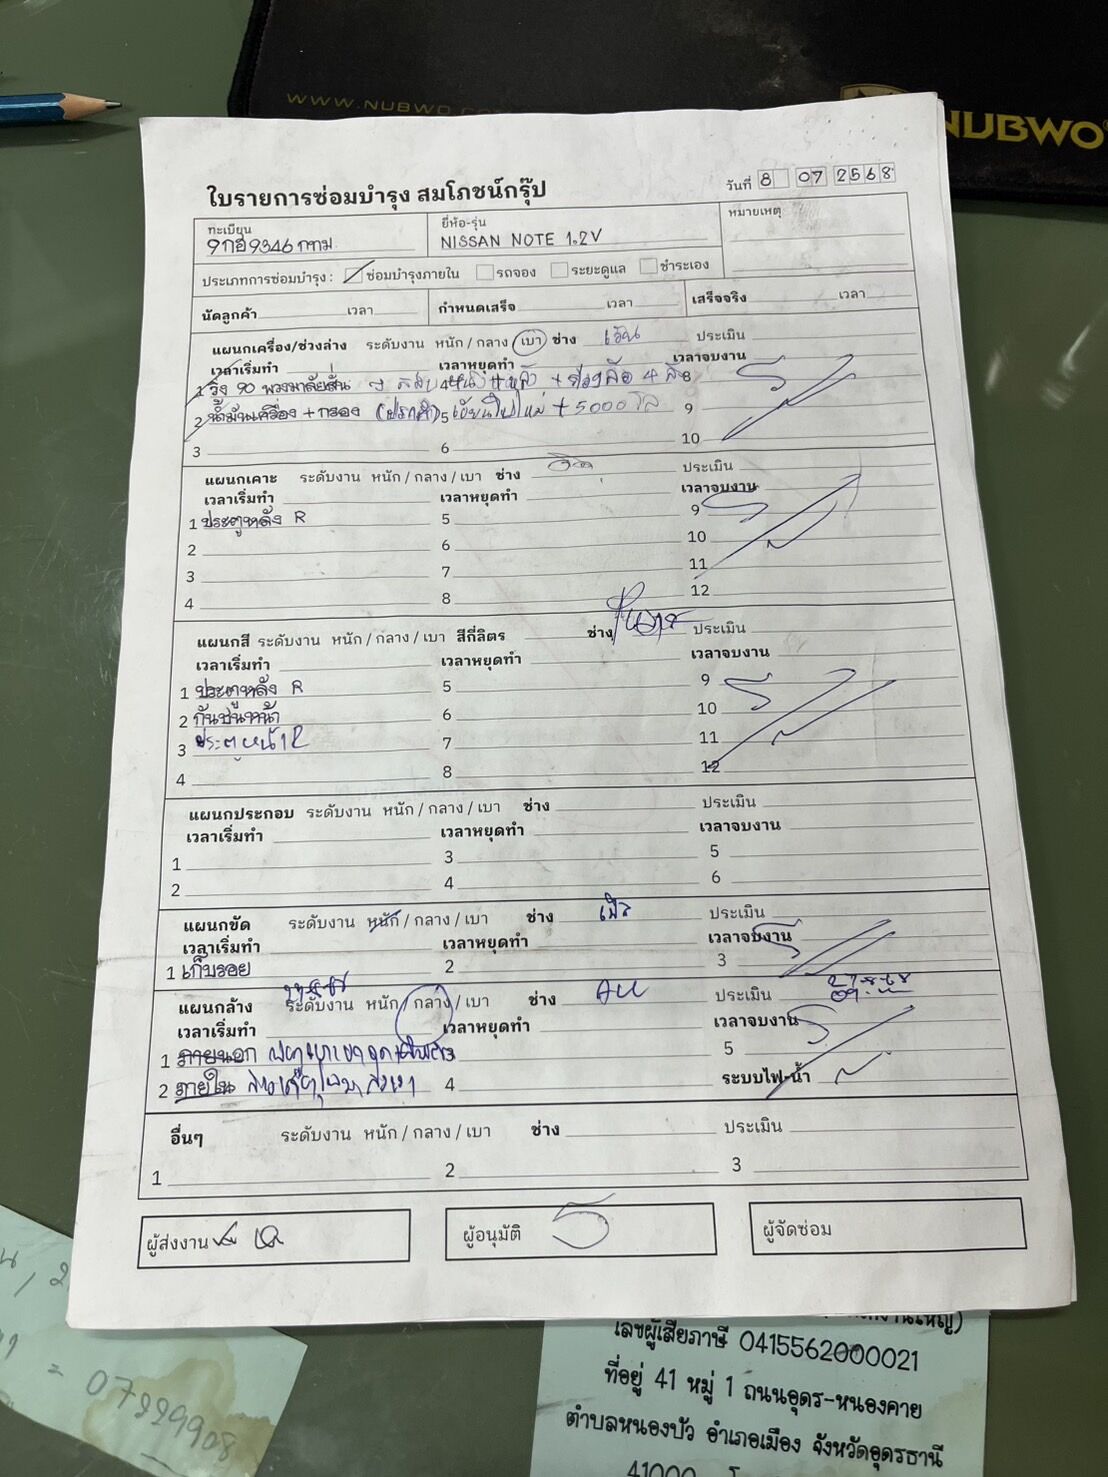 WWW.NUBWO.CO
NUBWO
ใบรายการซ่อมบำรุง สมโภชน์กรุ๊ป
วันที่ 8 07 2568
ทะเบียน
9กฮ9346 กทม
ยี่ห้อ-รุ่น
NISSAN NOTE 1.2V
หมายเหตุ
ประเภทการซ่อมบำรุง : ซ่อมบำรุงภายใน รถจอง ระยะดูแล ชำระเอง
นัดลูกค้า เวลา กำหนดเสร็จ เวลา เสร็จจริง เวลา
แผนกเครื่อง/ช่วงล่าง ระดับงาน หนัก / กลาง / เบา ช่าง ประเมิน
เวลาเริ่มทำ เวลาหยุดทำ เวลาจบงาน
1 วิ่ง 90 พวงมาลัยสั่น 4 8
2 น้ำมันเครื่อง + กรอง 5 + 5000 โล 9
3 6 10
แผนกเคาะ ระดับงาน หนัก / กลาง / เบา ช่าง ประเมิน
เวลาเริ่มทำ เวลาหยุดทำ เวลาจบงาน
1 ประตูหลัง R 5 9
2 6 10
3 7 11
4 8 12
แผนกสี ระดับงาน หนัก / กลาง / เบา สีกี่ลิตร ช่าง ประเมิน
เวลาเริ่มทำ เวลาหยุดทำ เวลาจบงาน
1 ประตูหลัง R 5 9
2 กันชนหน้า 6 10
3 ประตูหน้า R 7 11
4 8 12
แผนกประกอบ ระดับงาน หนัก / กลาง / เบา ช่าง ประเมิน
เวลาเริ่มทำ เวลาหยุดทำ เวลาจบงาน
1 3 5
2 4 6
แผนกขัด ระดับงาน หนัก / กลาง / เบา ช่าง ประเมิน
เวลาเริ่มทำ เวลาหยุดทำ เวลาจบงาน
1 เก็บรอย 2 3
แผนกล้าง ระดับงาน หนัก / กลาง / เบา ช่าง ประเมิน 27-8-68
เวลาเริ่มทำ เวลาหยุดทำ เวลาจบงาน
1 ภายนอก 3 5
2 ภายใน 4 ระบบไฟ-น้ำ
อื่นๆ ระดับงาน หนัก / กลาง / เบา ช่าง ประเมิน
1 2 3
ผู้ส่งงาน
ผู้อนุมัติ
ผู้จัดซ่อม
เลขผู้เสียภาษี 0415562000021
ที่อยู่ 41 หมู่ 1 ถนนอุดร-หนองคาย
ตำบลหนองบัว อำเภอเมือง จังหวัดอุดรธานี
41000